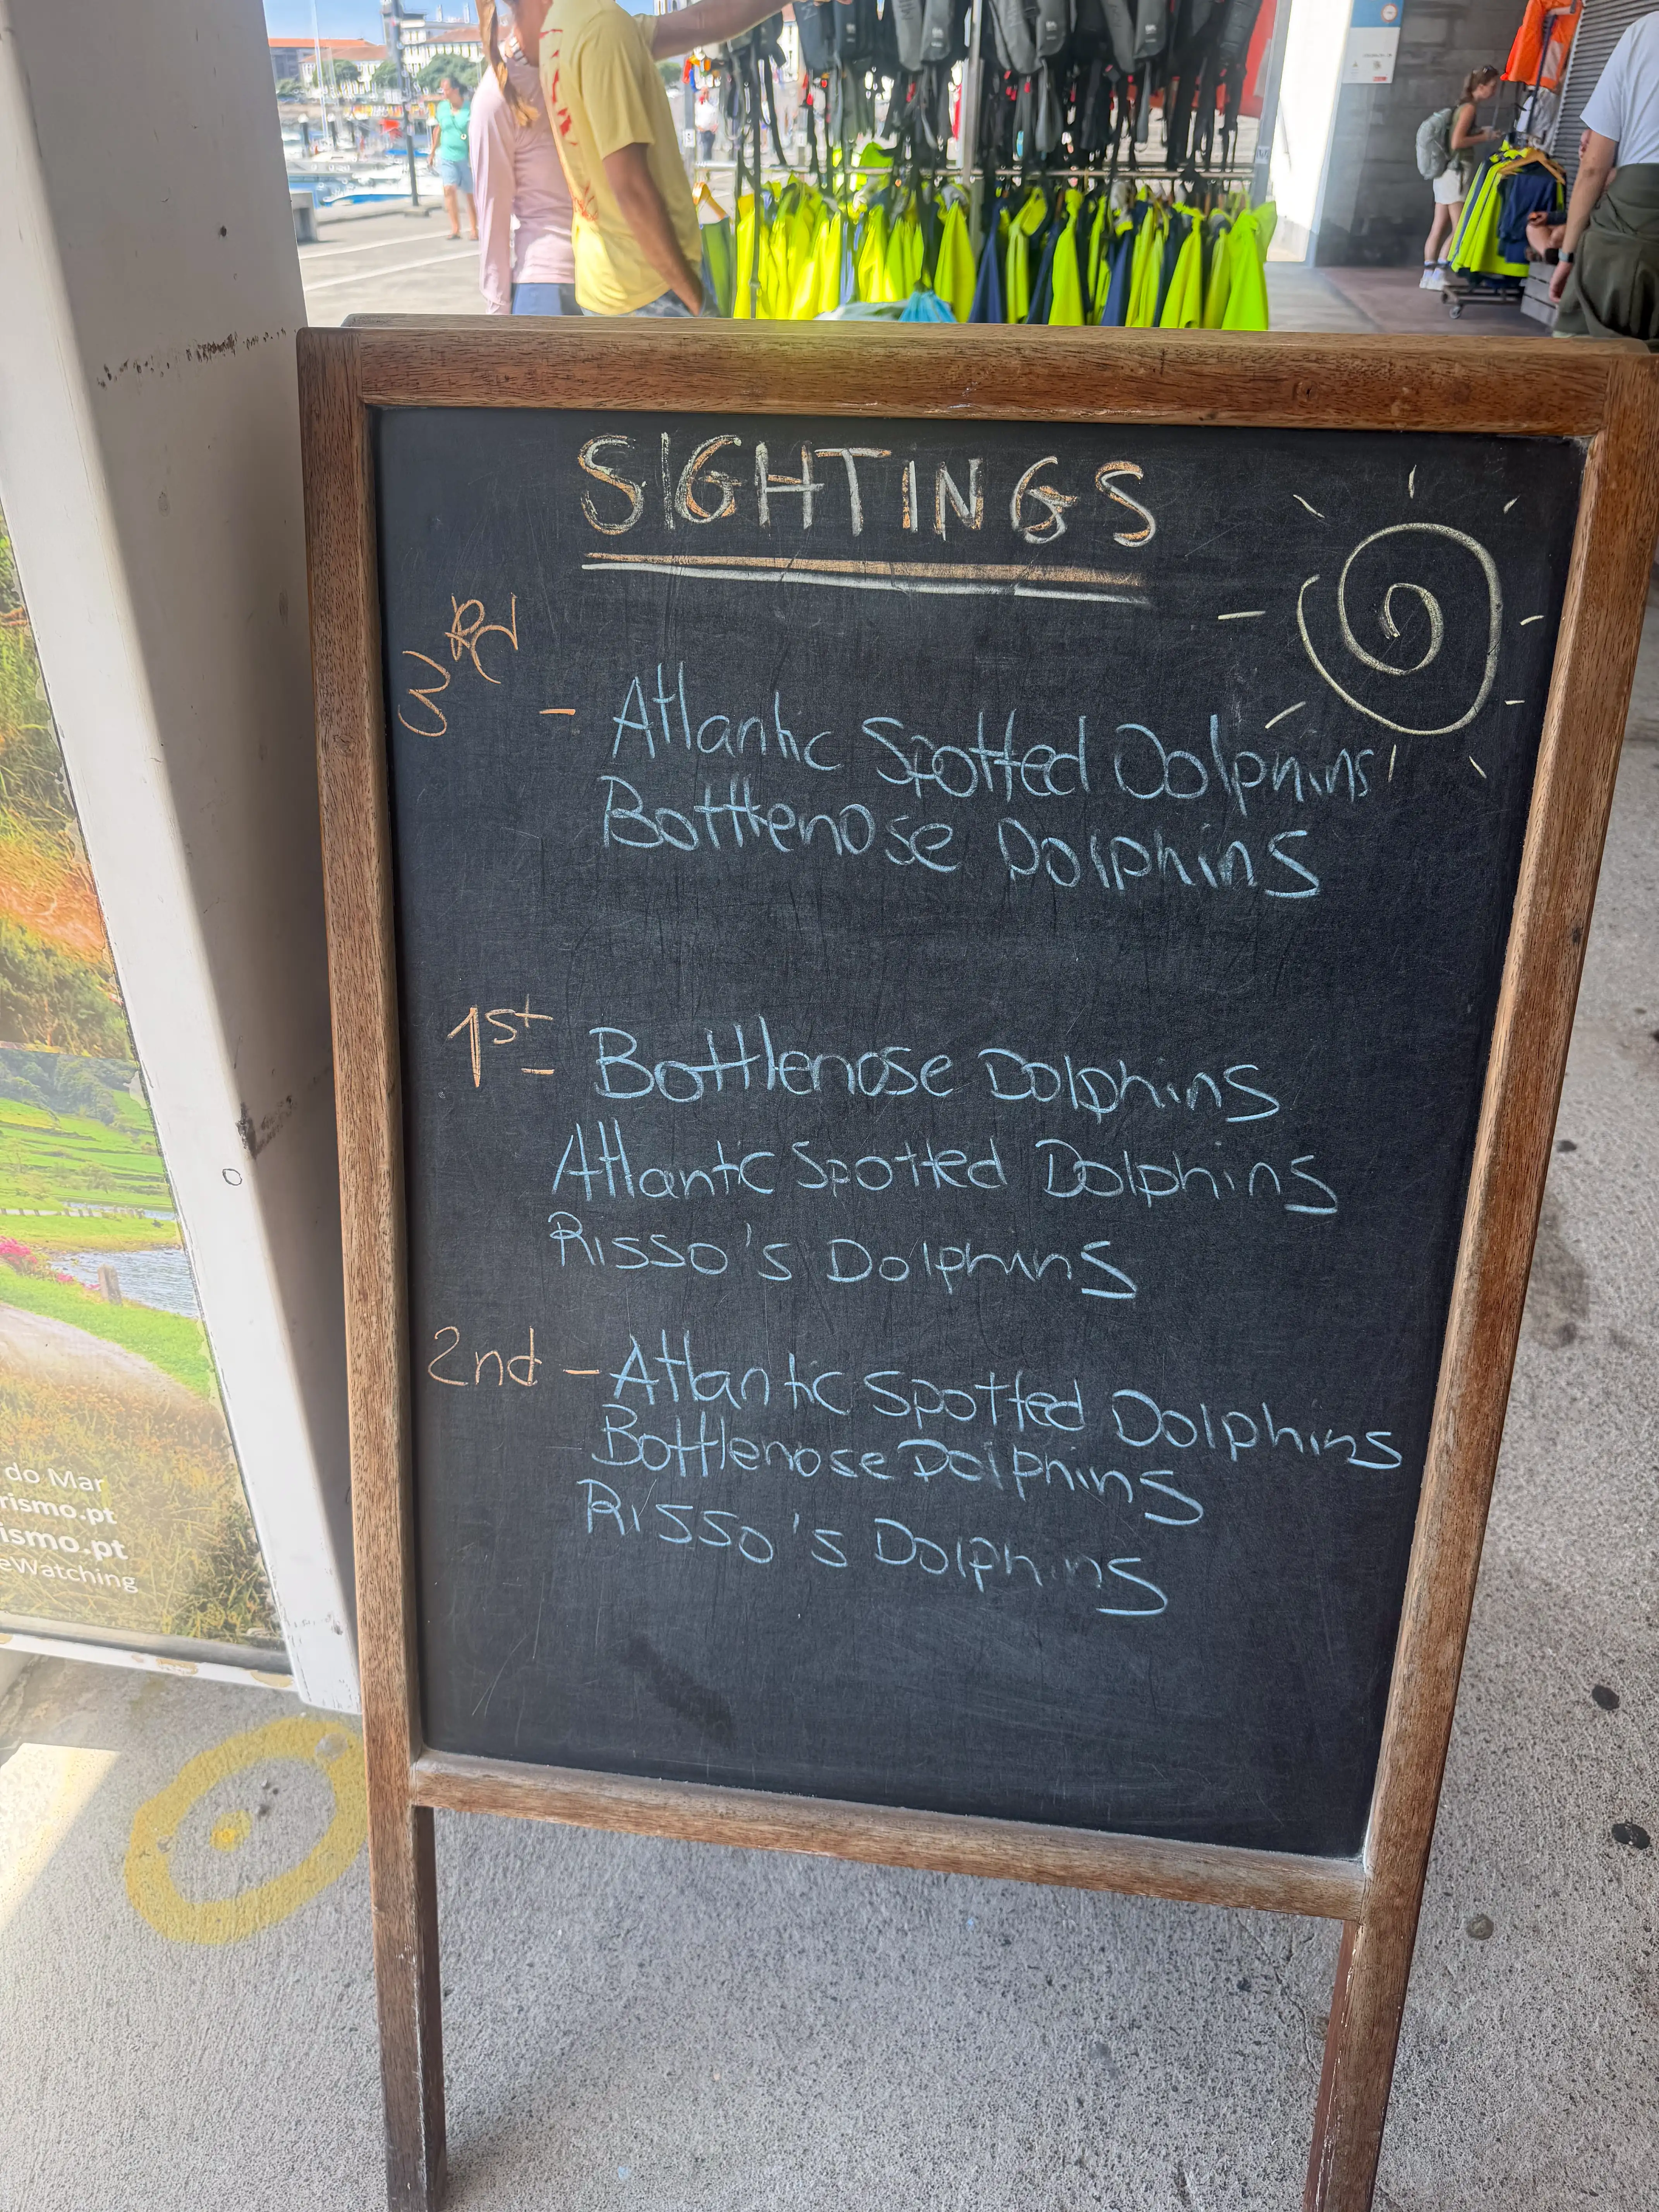 SIGHTINGS
3RD
- Atlantic Spotted Dolphins
Bottlenose Dolphins
1st - Bottlenose Dolphins
Atlantic Spotted Dolphins
Risso's Dolphins
2nd - Atlantic Spotted Dolphins
Bottlenose Dolphins
Risso's Dolphins
do Mar
rismo.pt
ismo.pt
eWatching